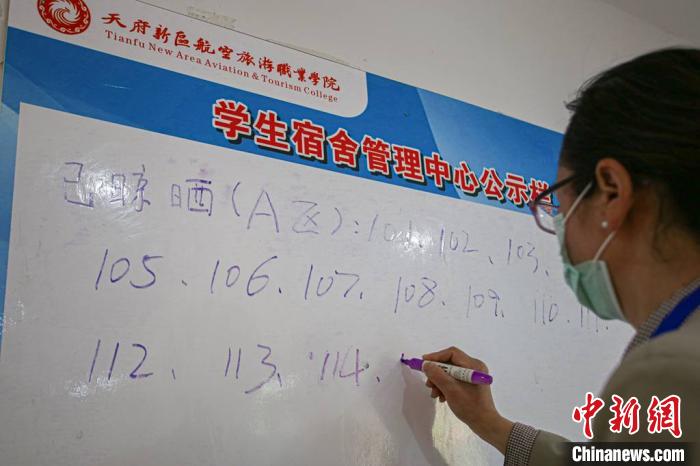 天府新区航空旅游职业学院
Tianfu New Area Aviation & Tourism College
学生宿舍管理中心公示栏
已晾晒(A区):101、102、103、
105、106、107、108、109、110、111、
112、113、114、
中新网
Chinanews.com